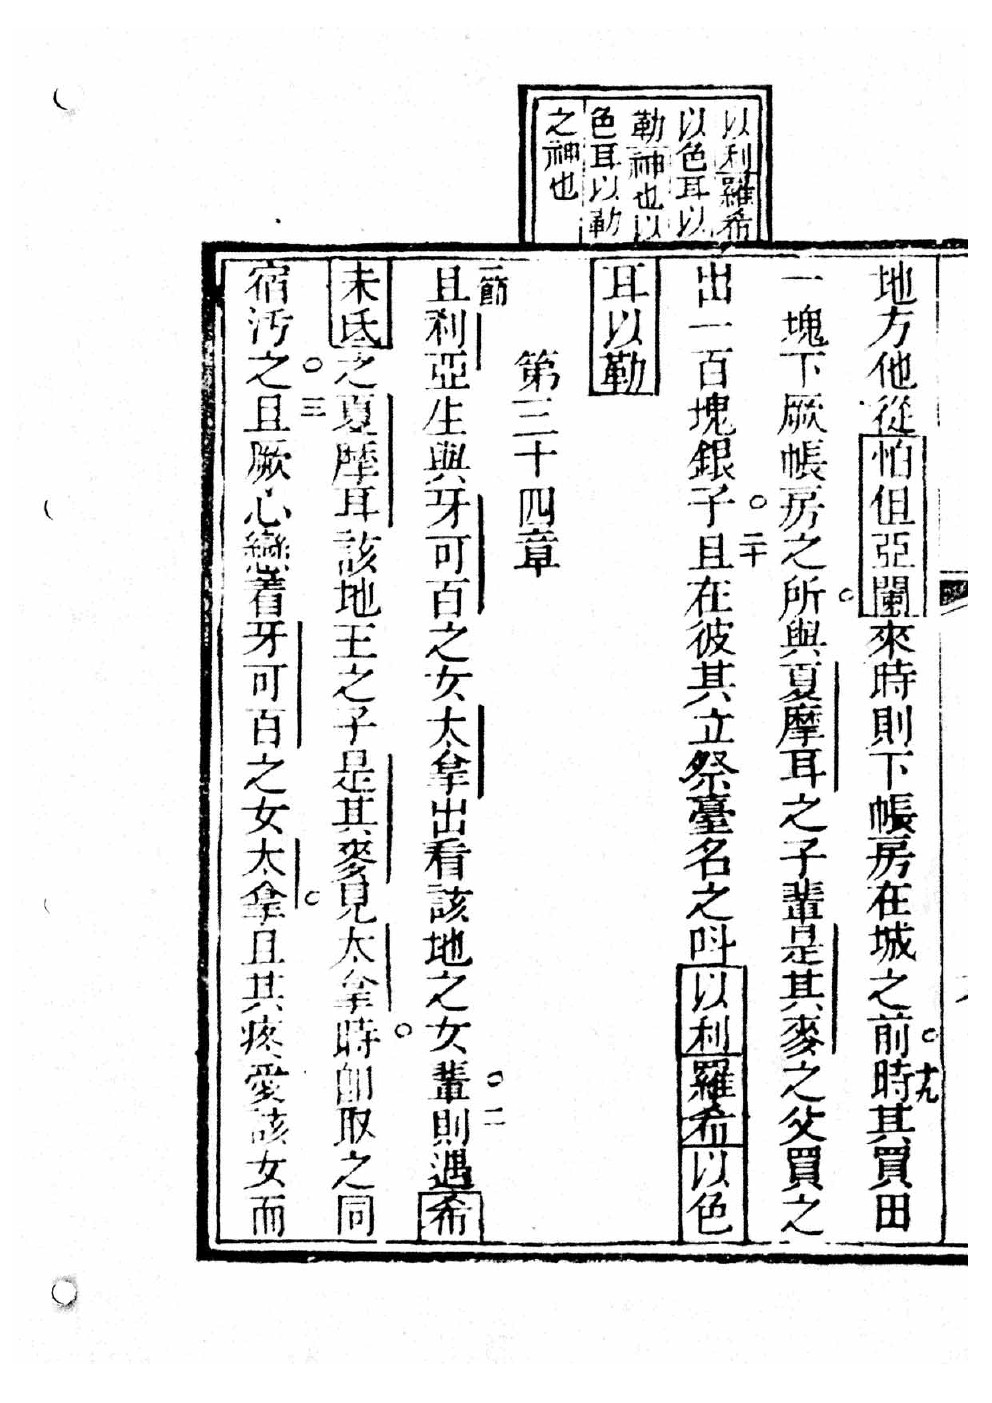 以利羅希
以色耳以
勒神也以
色耳以勒
之神也
地方他從怕但亞闌來時則下帳房在城之前。十九時其買田
一塊下厥帳房之所與夏摩耳之子輩是其麥之父買之
出一百塊銀子。二十且在彼其立祭臺名之呌以利羅希以色
耳以勒
第三十四章
一節且利亞生與牙可百之女大拿出看該地之女輩。二則遇希
未氐之夏摩耳該地王之子是其麥見大拿時。卽取之同
宿汚之。三且厥心戀着牙可百之女大拿。且其疼愛該女而